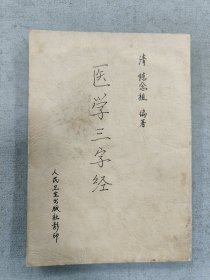 清 陈念祖 编著
医学三字经
人民卫生出版社影印